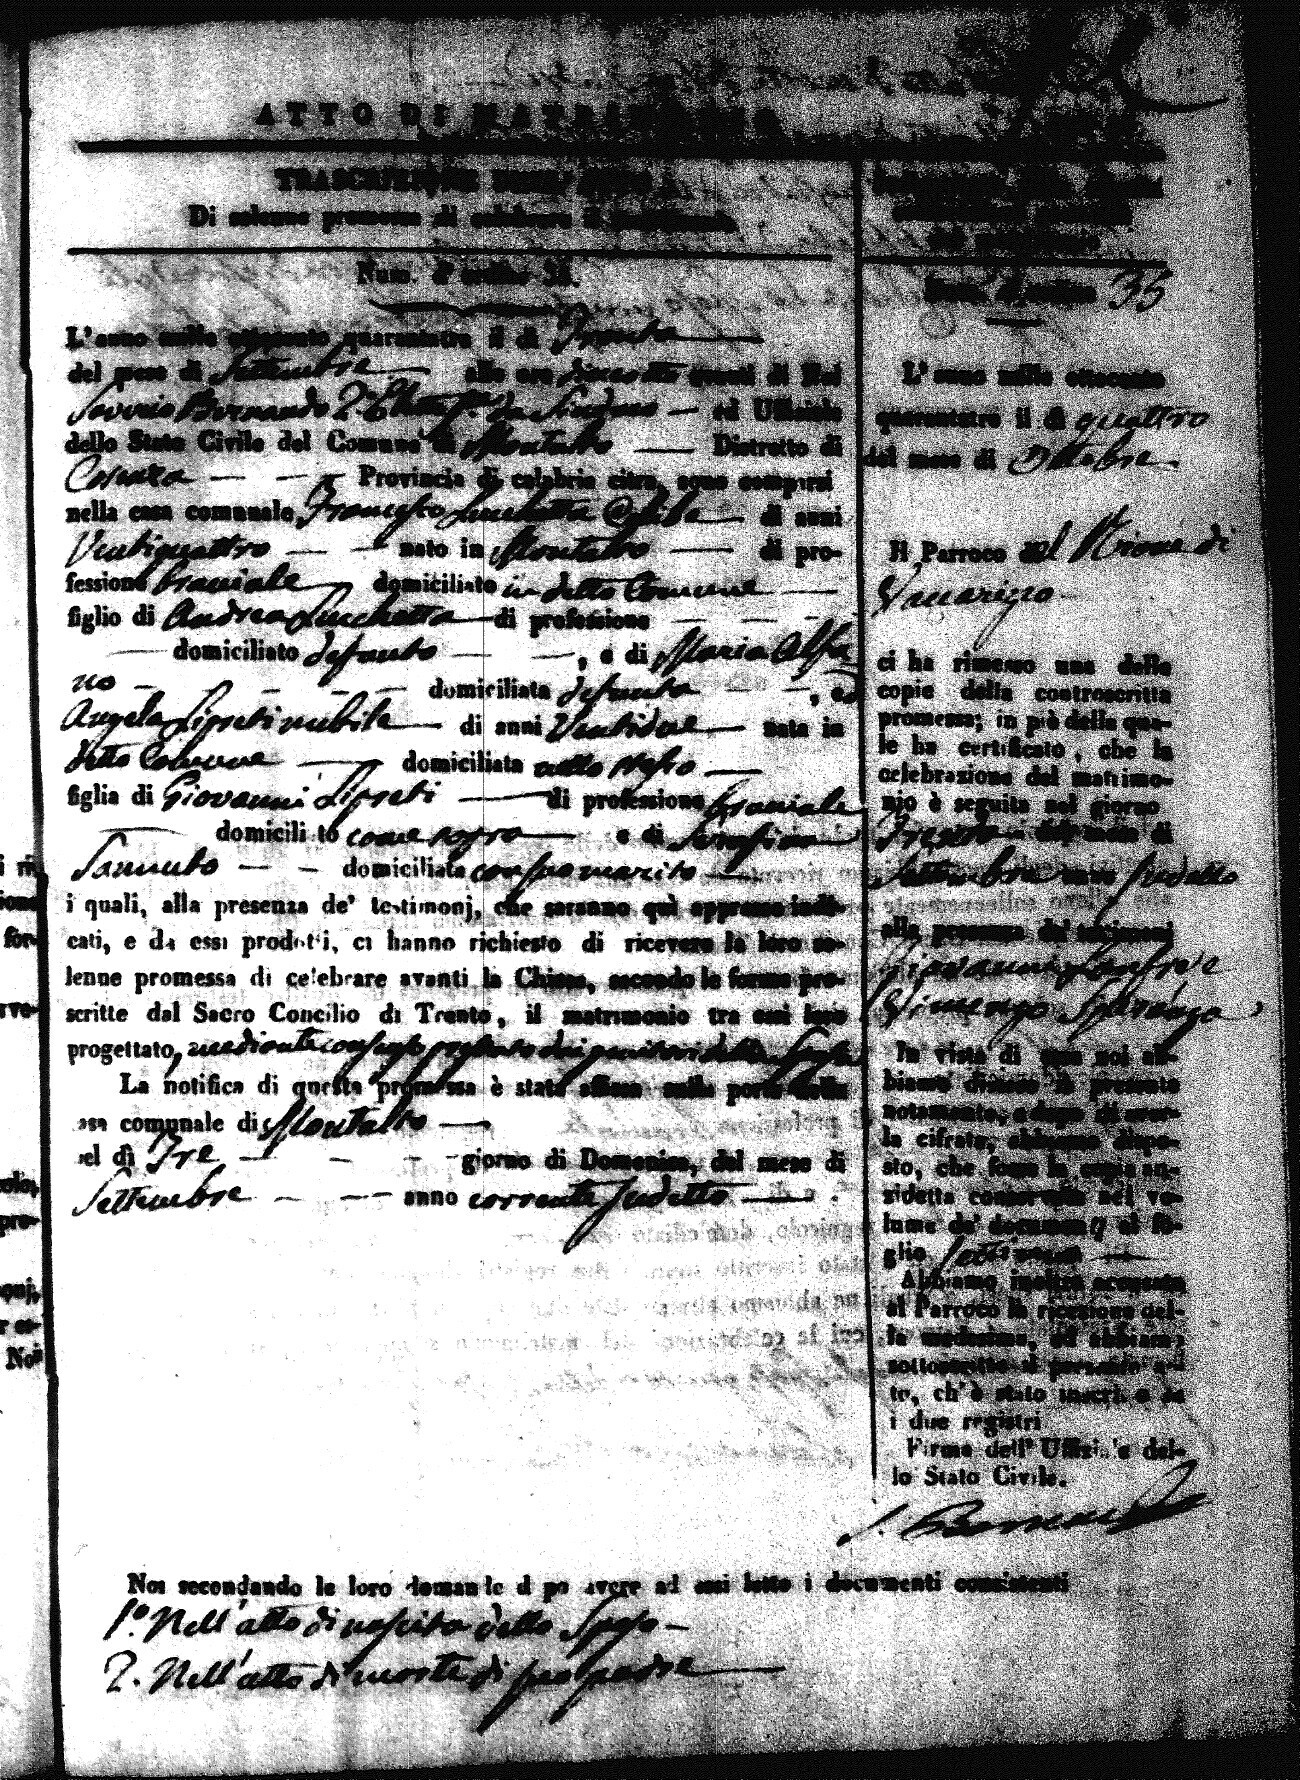 ATTO DI MATRIMONIO
TRASCRIZIONE DELL' ATTO
Di solenne promessa di celebrare il matrimonio
Num. d' ordine 35.
L'anno mille ottocento quarantatre il di Trenta
del mese di Settembre alle ore diecisette avanti di Noi
Saverio Bernardo da Sindaco ed Uffiziale
dello Stato Civile del Comune di Montalto Distretto di
Cosenza Provincia di calabria citra, sono comparsi
nella casa comunale Francesco Luchetta Celibe di anni
Ventiquattro nato in Montalto di pro-
fessione braciale domiciliato in detto Comune
figlio di Andrea Luchetta di professione
domiciliato defunto , e di Maria Alfa
no domiciliata defunta , ed
Angela Lipreti nubile di anni Ventidue nata in
detto Comune domiciliata nello stesso
figlia di Giovanni Lipreti di professione braciale
domicili to come sopra e di Serafina
Sannuto domiciliata con suo marito
i quali, alla presenza de' testimonj, che saranno quì appresso indi-
cati, e da essi prodotti, ci hanno richiesto di ricevere la loro so-
lenne promessa di celebrare avanti la Chiesa, secondo le forme pre-
scritte dal Sacro Concilio di Trento, il matrimonio tra essi loro
progettato, mediante consenso prestato dai genitori della Sposa
La notifica di questa promessa è stata affissa sulla porta della
asa comunale di Montalto
el dì Tre giorno di Domenica, del mese di
Settembre anno corrente sudetto
Num. d'ordine 35
L'anno mille ottocento
quarantatre il di quattro
del mese di Ottobre
Il Parroco del Rione di
Vaccarizzo
ci ha rimesso una delle
copie della controscritta
promessa; in piè della qua-
le ha certificato, che la
celebrazione del matrimo-
nio è seguita nel giorno
Trenta del mese di
Settembre anno sudetto
alla presenza de' testimoni
Giovanni
Speranza
In vista di essa noi ab-
biamo disteso il presente
notamento, e dopo di aver-
la cifrata, abbiamo dispo-
sto, che fosse la copia an-
zidetta conservata nel vo-
lume de' documenti al fo-
glio
Abbiamo inoltre accusato
al Parroco la ricezione del-
la medesima, ed abbiamo
sottoscritto il presente at-
to, ch'è stato inscritto su
i due registri
Firma dell' Uffiziale del-
lo Stato Civile.
S. Bernardo
Noi secondando le loro domande d po avere ad essi letto i documenti consistenti
1.° Nell'atto di nascita dello Sposo
2. Nell'atto di morte di suo padre